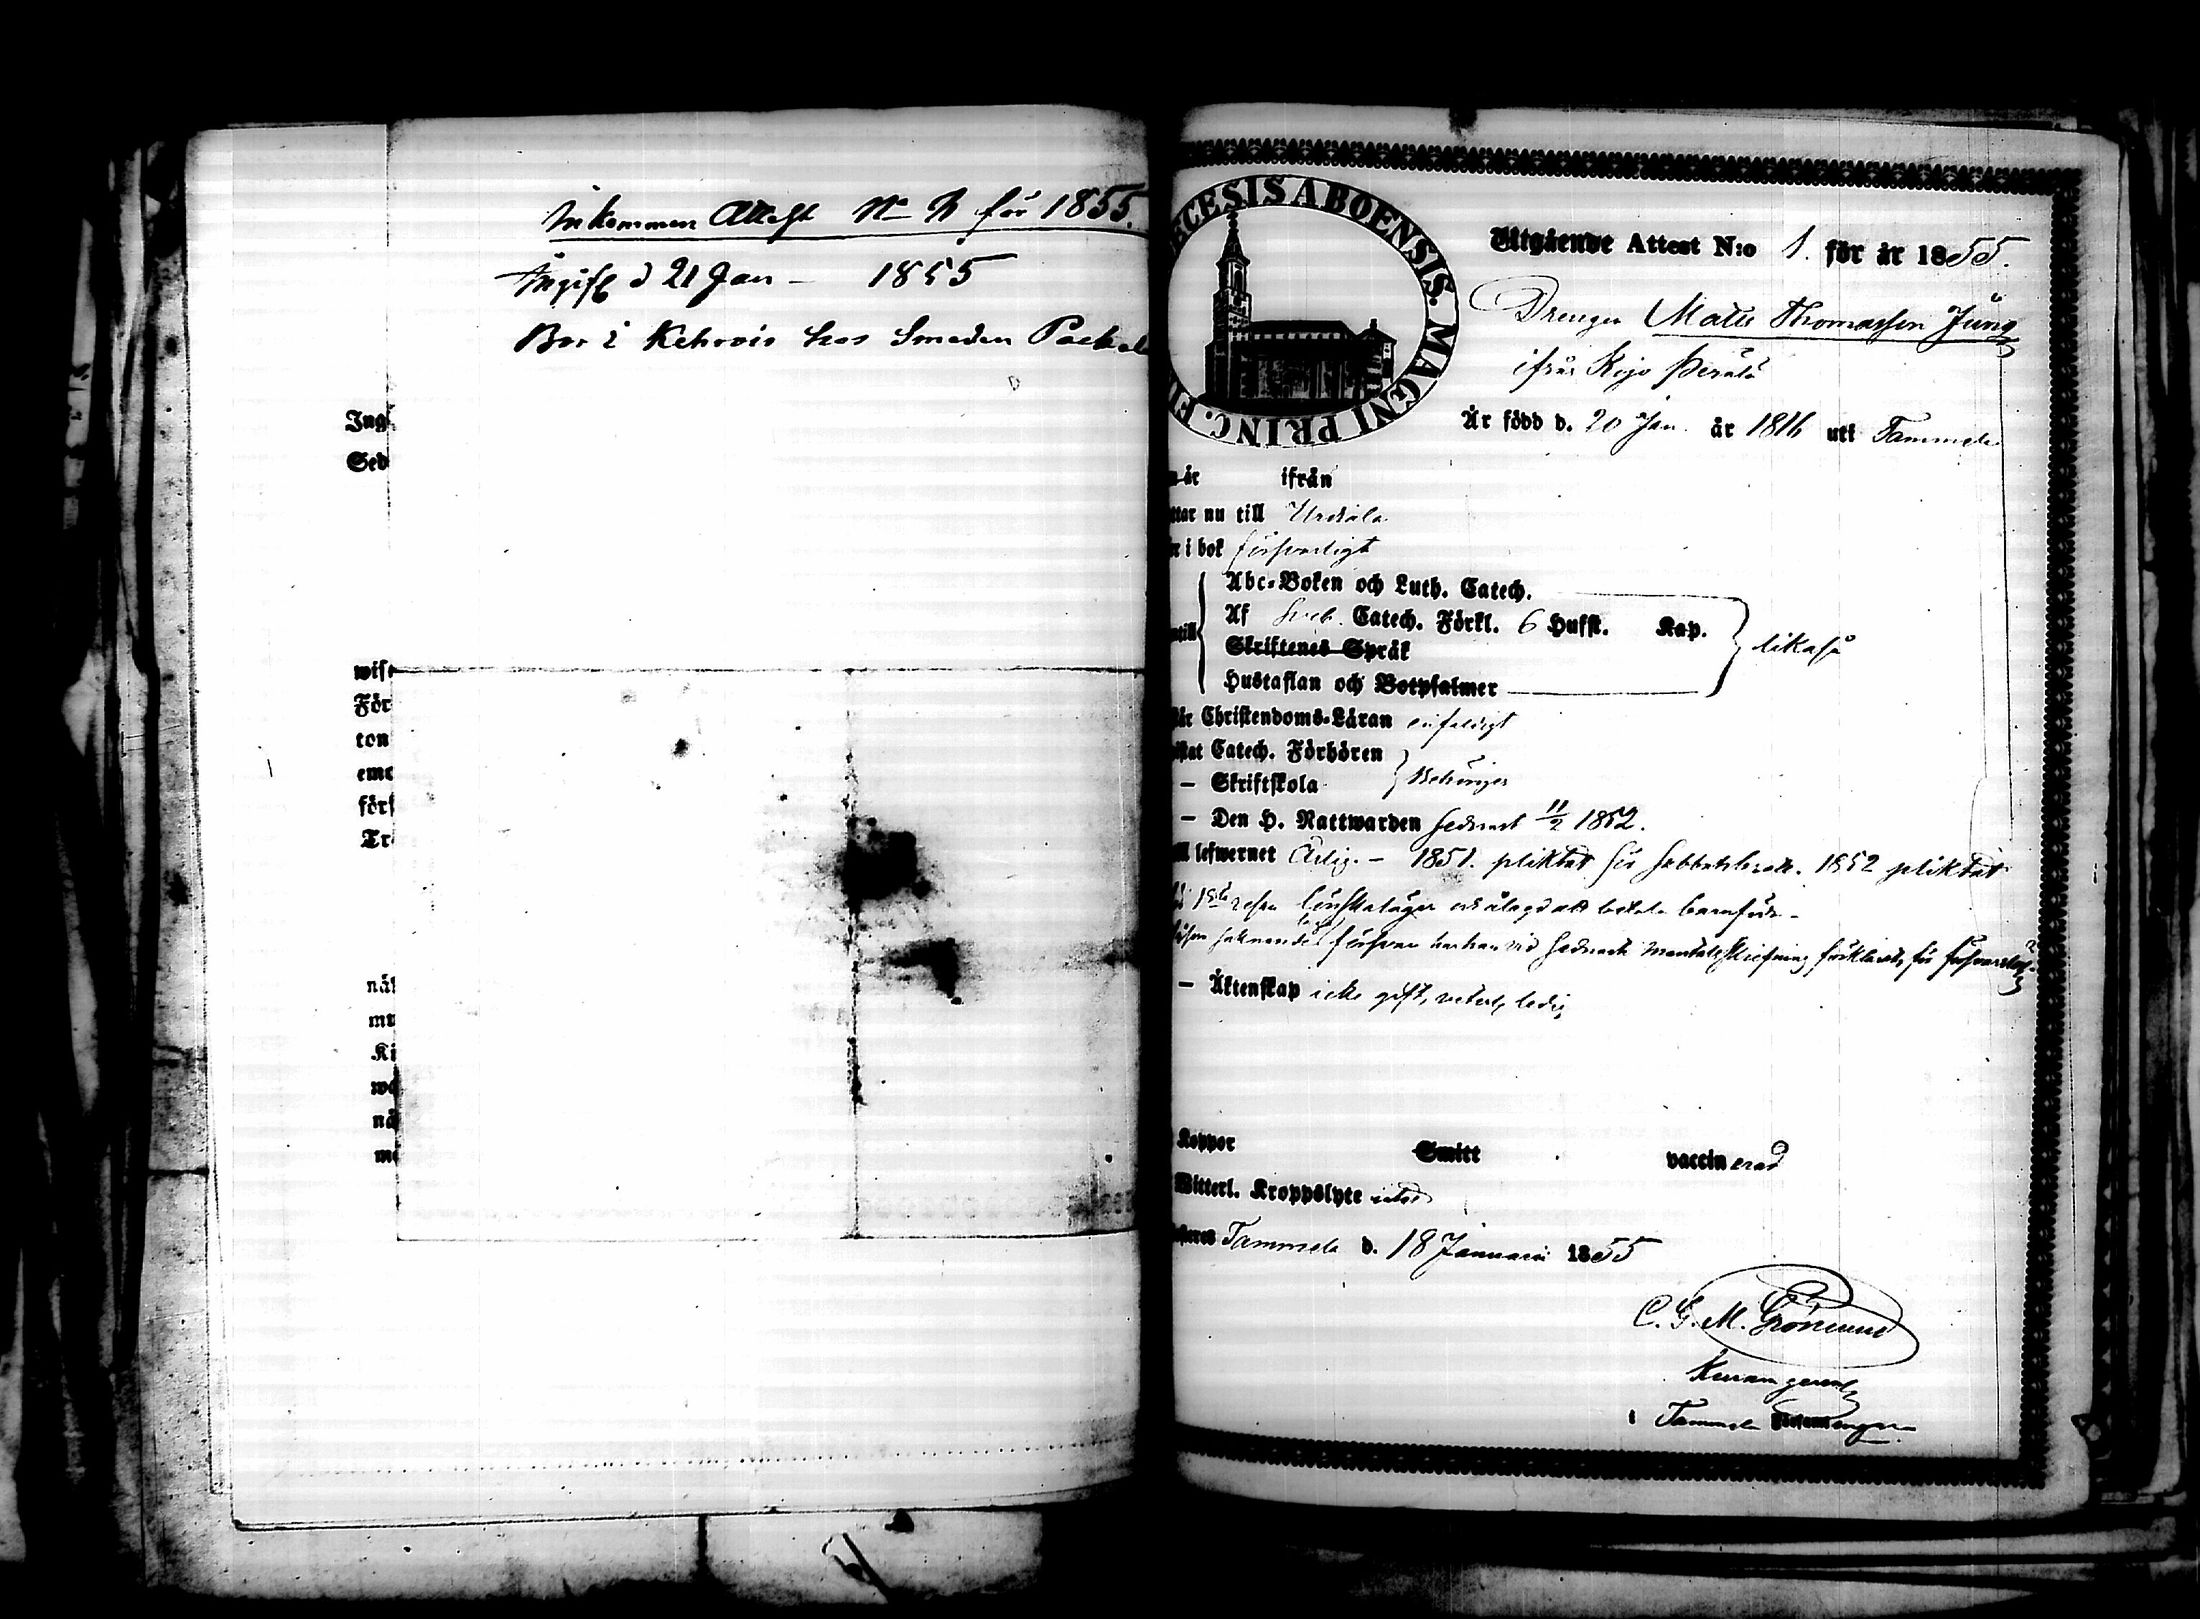 Inkommen Attest No 2 för 1855.
Angifv. d 21 Jan – 1855
Bor i Kehrois hos Smeden
Ing
Sed
wis
För
ton
emo
förs
Tr
näl
mu
Ki
wä
nä
me
ECESIS ABOENSIS. MAGNI PRINC. FI
Utgående Attest N:o 1. för år 1855.
Drengen Matts Thomasson Jung
ifrån Kojo Perälä
Är född d. 20 Jan. år 1816 uti Tammela
år ifrån
ttar nu till Urdiala
r i bok försvarligt
Abc-Boken och Luth. Catech.
Af Sveb. Catech. Förkl. 6 Hufst. Kap.
ntill likaså
Skriftenes Språk
Hustaflan och Botpsalmer
tår Christendoms-Läran enfaldigt
istat Catech. Förhören
– Skriftskola behörigen
– Den H. Nattwarden sednast 11/2 1852.
ll lefwernet Ärlig. – 1851. pliktat för sabbatsbrott. 1852 pliktat
1sta resan lönskaläger och ålagd att betala barnföda –
saknande laga försvar har han vid sednaste mantalsskrifning förklarats för försvarslös.
– Äktenskap icke gift, veterl. ledig
Koppor Smitt vaccinerad
Witterl. Kroppslyte intet
steres Tammela d. 18 Januari 1855
C. G. M. Grönlund
i Tammela Församlingen